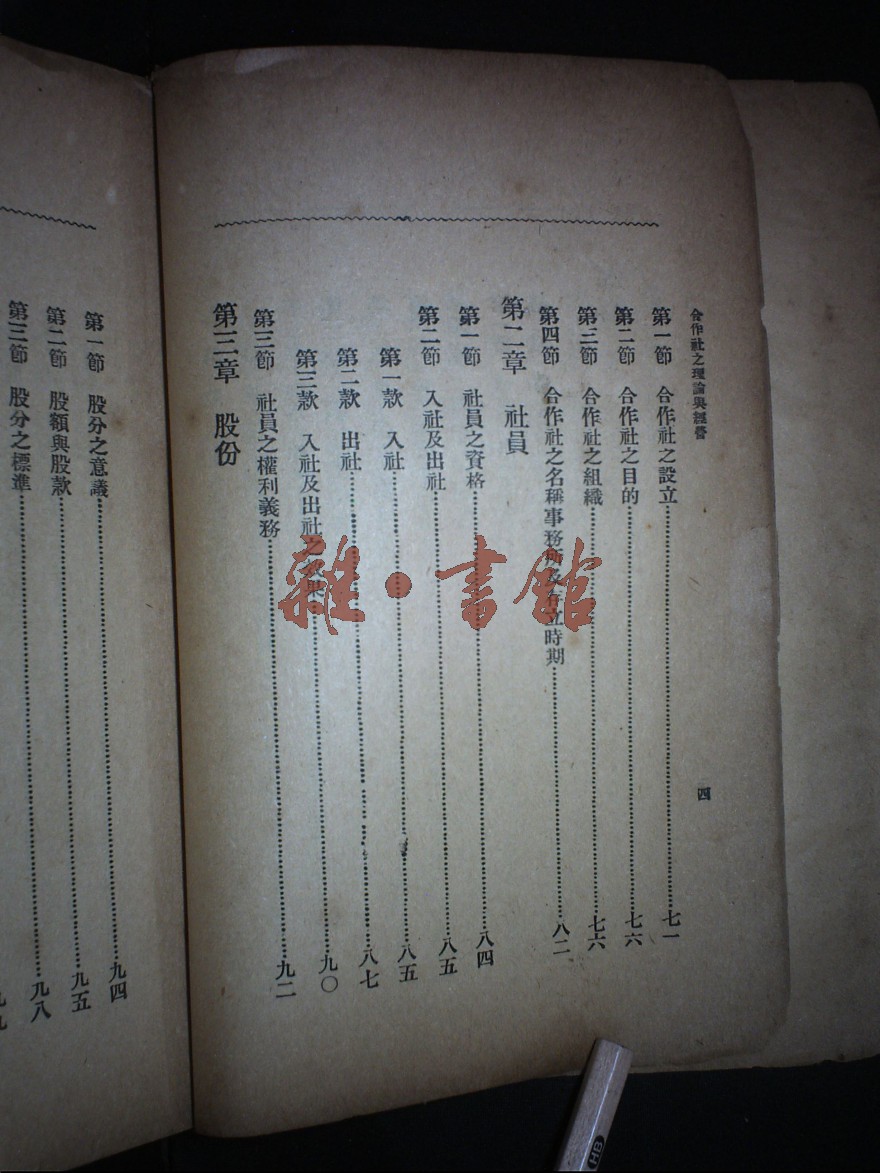 合作社之理論與經營
四
第一節 合作社之設立……七一
第二節 合作社之目的……七六
第三節 合作社之組織……七六
第四節 合作社之名稱事務所及存立時期……八二
第二章 社員
第一節 社員之資格……八四
第二節 入社及出社……八五
第一款 入社……八五
第二款 出社……八七
第三款 入社及出社之效果……九〇
第三節 社員之權利義務……九二
第三章 股份
第一節 股分之意議……九四
第二節 股額與股款……九五
第三節 股分之標準……九八
雜·書館
HB